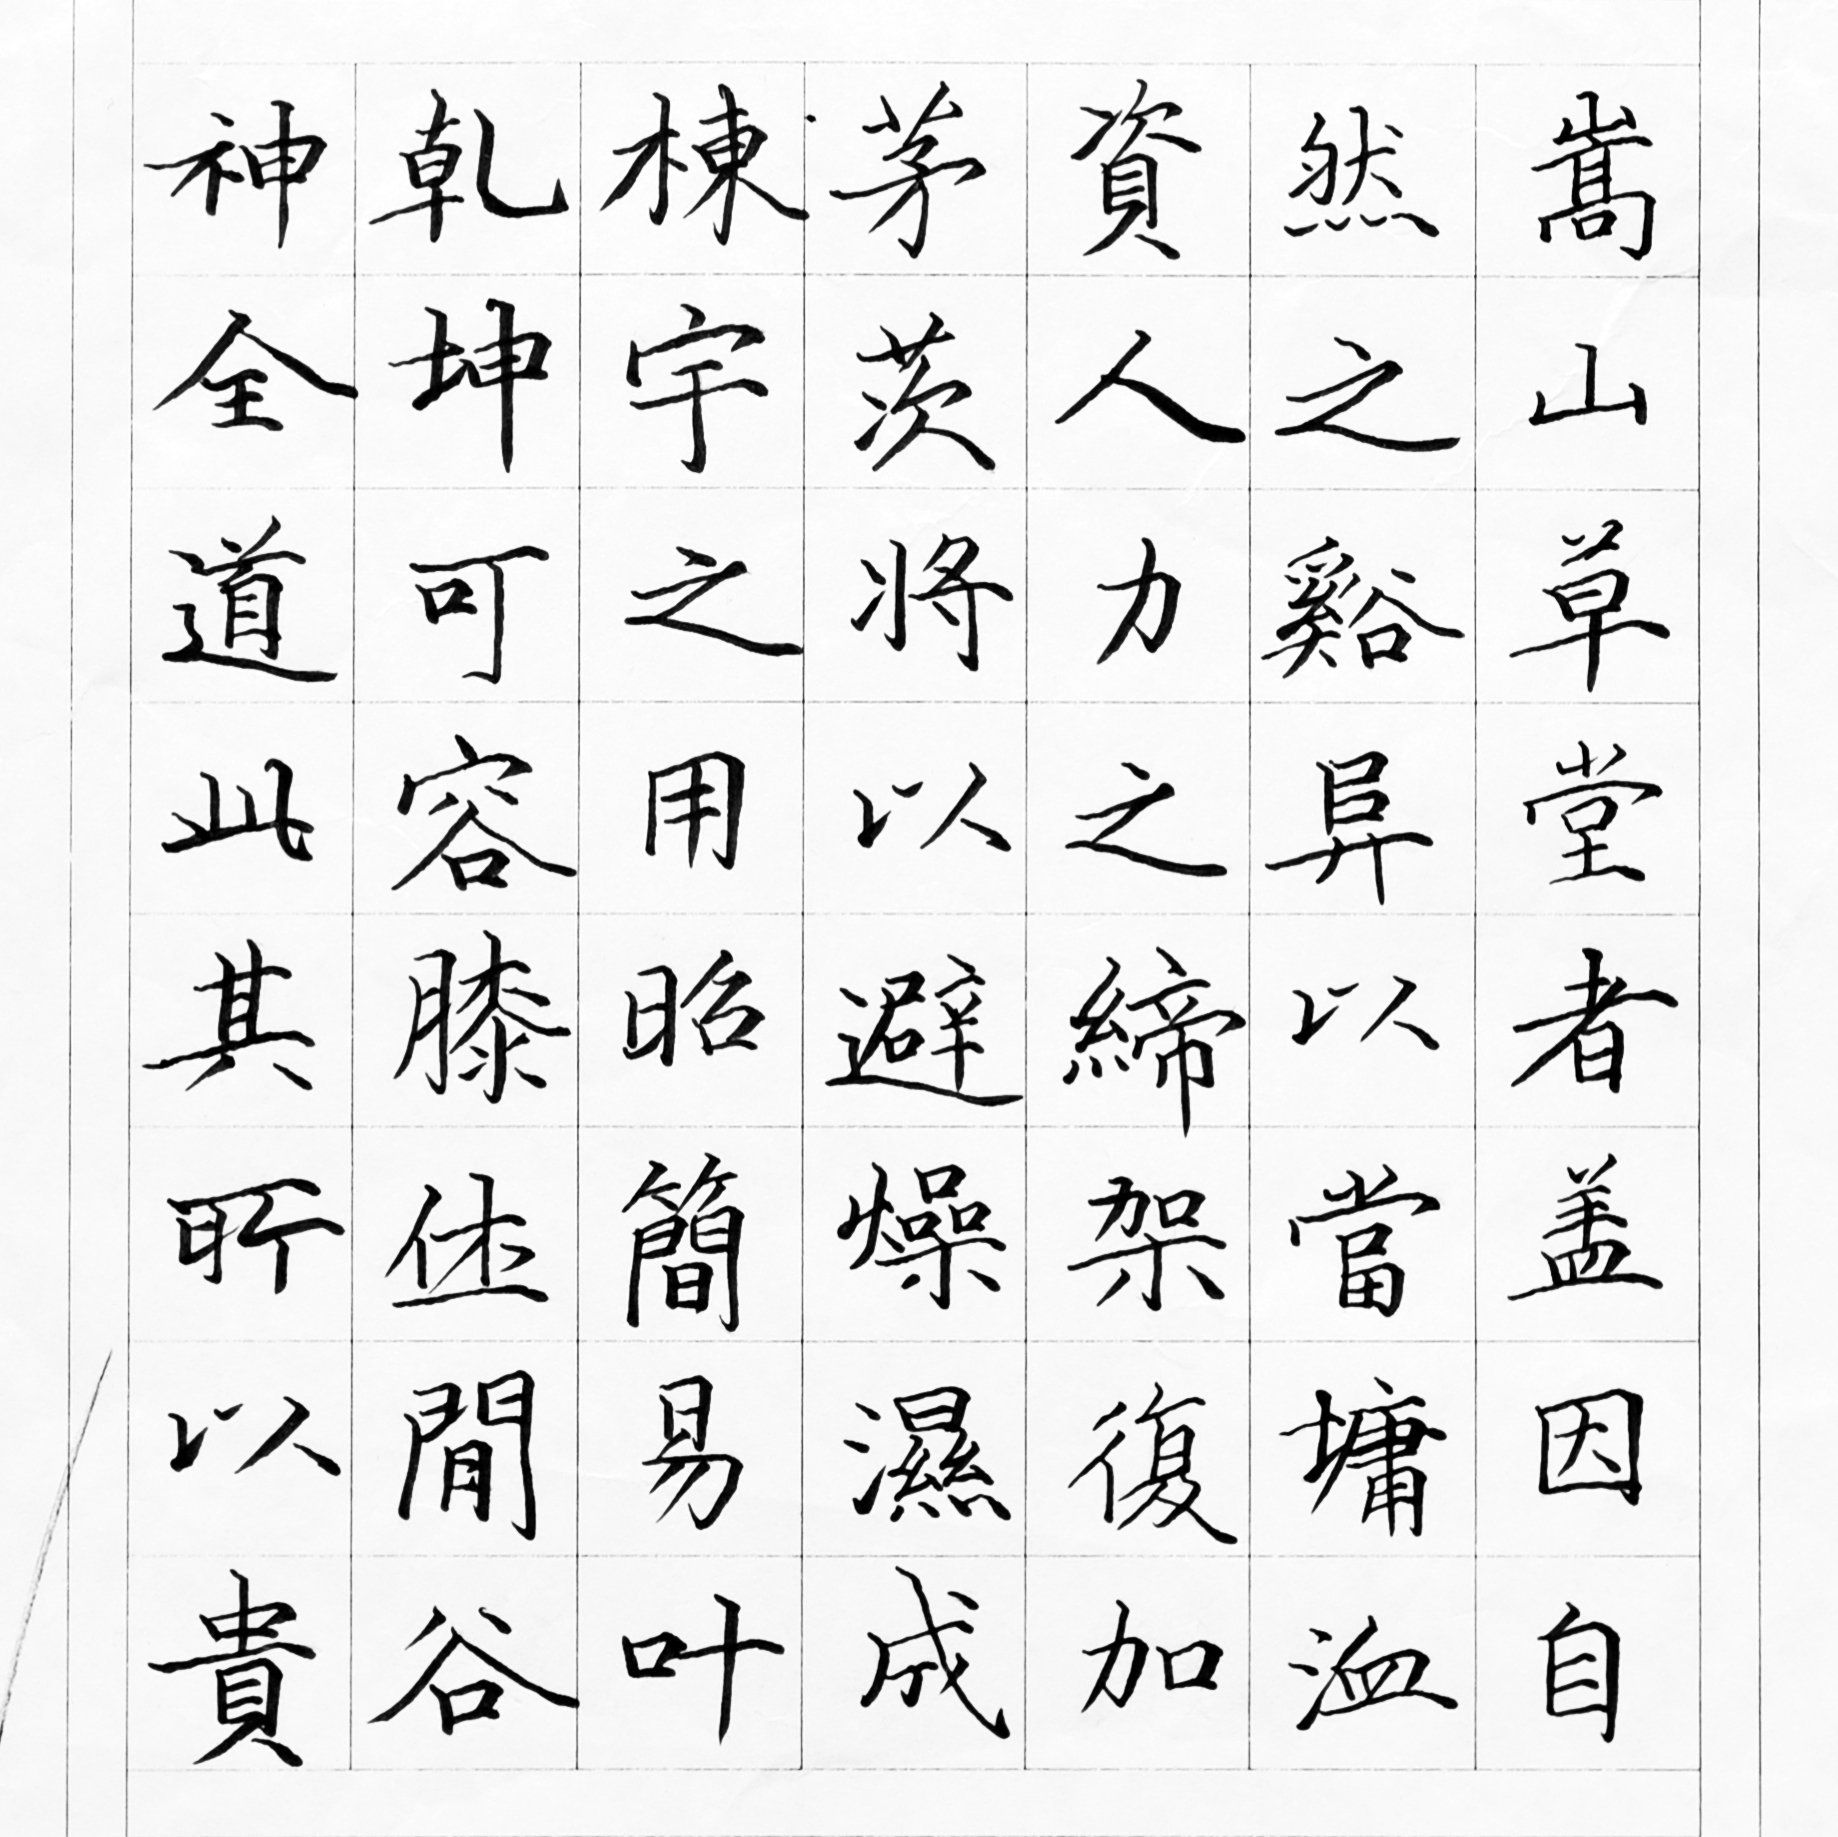 嵩山草堂者盖因自
然之谿阜以當墉洫
資人力之締架復加
茅茨將以避燥濕成
棟宇之用昭簡易叶
乾坤可容膝休閒谷
神全道此其所以貴